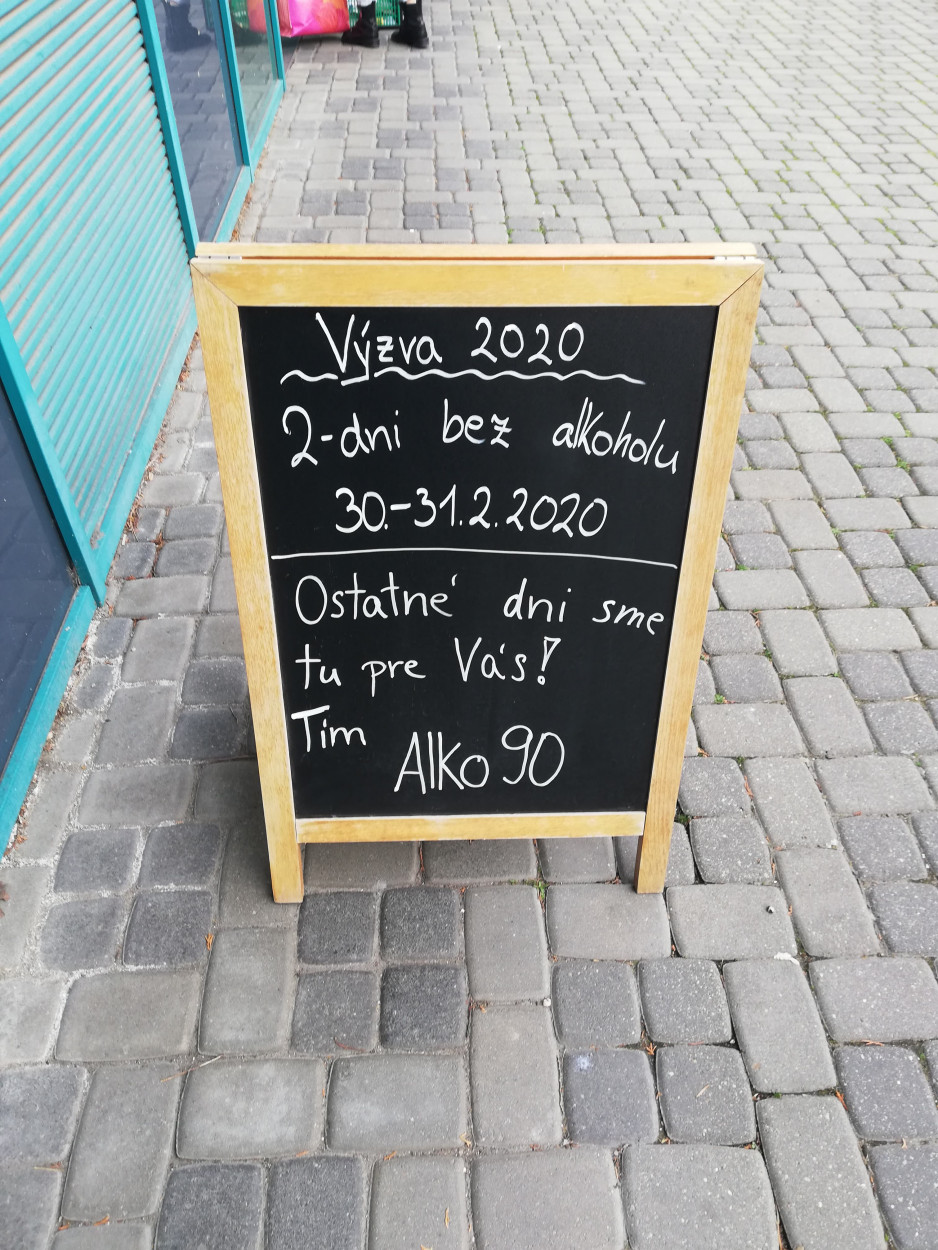 Výzva 2020
2-dni bez alkoholu
30.-31.2.2020
Ostatné dni sme
tu pre Vás!
Tím
Alko 90